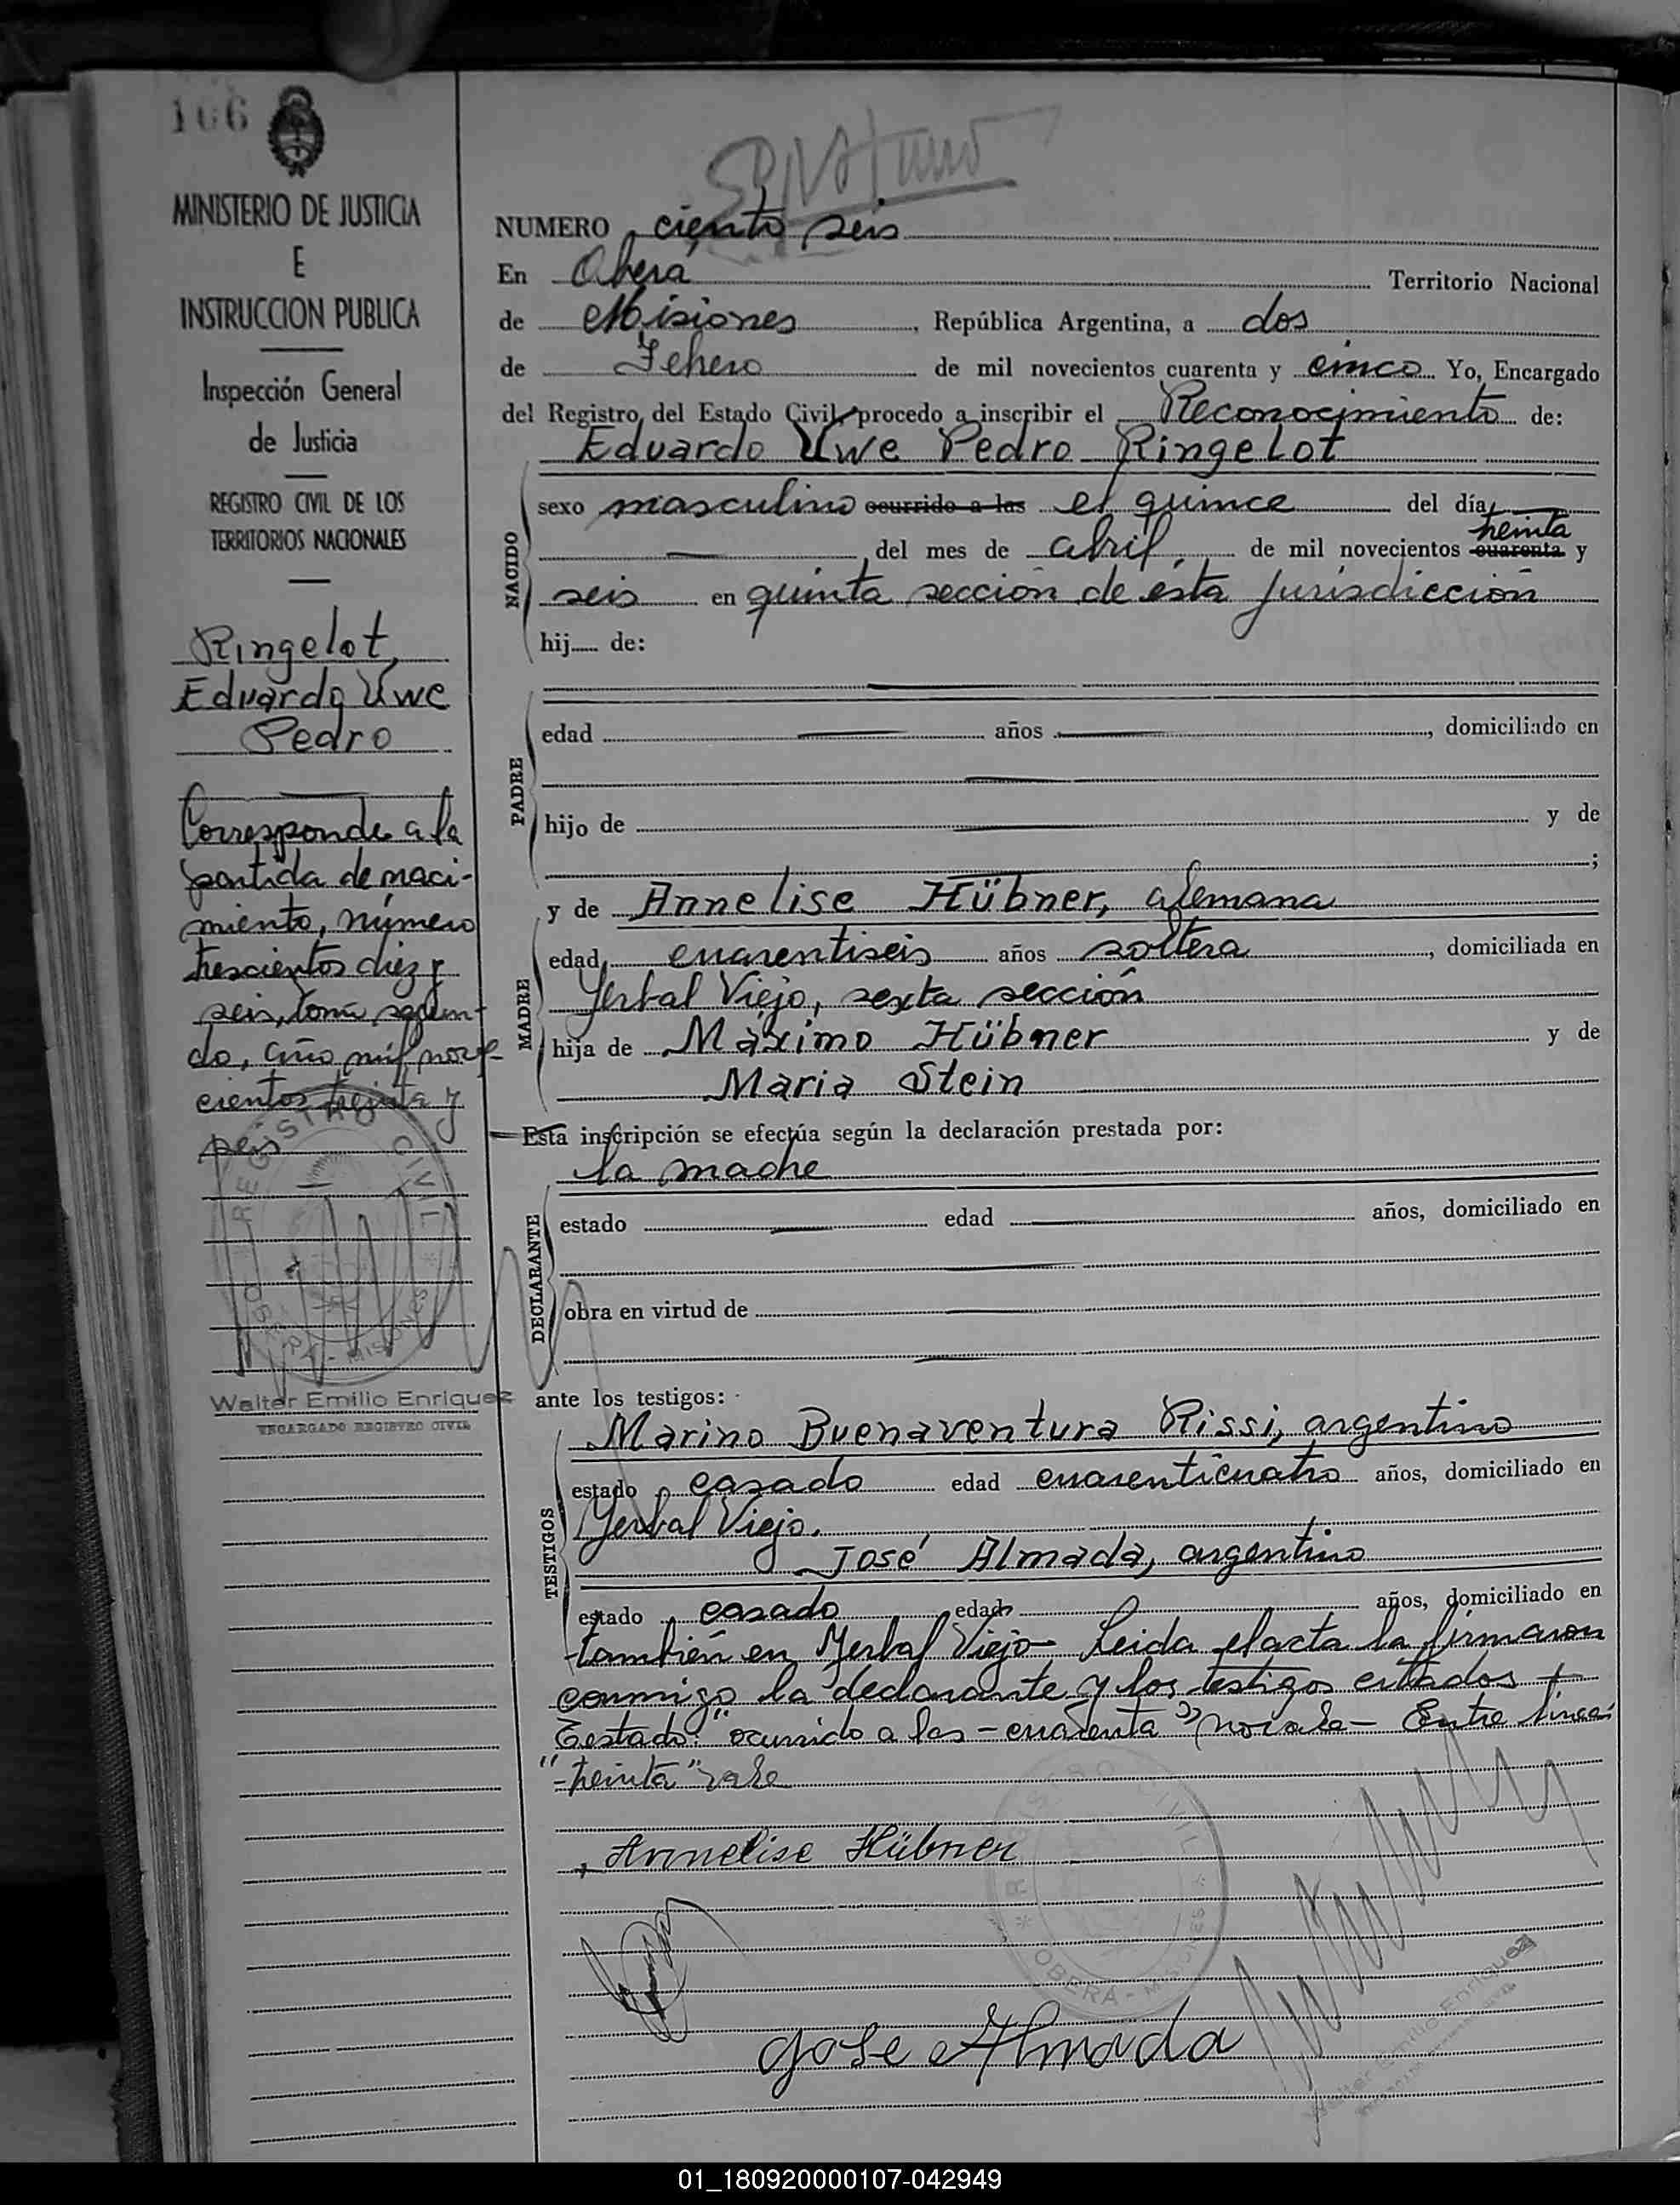 106
MINISTERIO DE JUSTICIA
E
INSTRUCCION PUBLICA
Inspección General
de Justicia
REGISTRO CIVIL DE LOS
TERRITORIOS NACIONALES
Ringelot,
Eduardo Uwe
Pedro
Corresponde a la
partida de naci-
miento, número
trescientos diez y
seis, tomo segun-
do, año mil nove-
cientos treinta y
seis
REGISTRO CIVIL
OBERA - MISIONES
Walter Emilio Enriquez
ENCARGADO REGISTRO CIVIL
NUMERO ciento seis
En Oberá Territorio Nacional
de Misiones, República Argentina, a dos
de Febrero de mil novecientos cuarenta y cinco Yo, Encargado
del Registro del Estado Civil procedo a inscribir el Reconocimiento de:
Eduardo Uwe Pedro Ringelot
NACIDO
sexo masculino ocurrido a las el quince del día
treinta
del mes de abril, de mil novecientos cuarenta y
seis en quinta sección de ésta Jurisdicción
hij de:
PADRE
edad años, domiciliado en
hijo de y de
;
MADRE
y de Annelise Hübner, alemana
edad cuarentiseis años soltera, domiciliada en
Yerbal Viejo, sexta sección
hija de Máximo Hübner y de
Maria Stein
Esta inscripción se efectúa según la declaración prestada por:
la madre
DECLARANTE
estado edad años, domiciliado en
obra en virtud de
ante los testigos:
TESTIGOS
Marino Buenaventura Rissi, argentino
estado casado edad cuarenticuatro años, domiciliado en
Yerbal Viejo.
José Almada, argentino
estado casado edad años, domiciliado en
también en Yerbal Viejo- Leida el acta la firmaron
conmigo la declarante y los testigos citados
Testado: "ocurrido a las - cuarenta" no vale - Entre lineas
"- treinta" vale
Annelise Hübner
REGISTRO CIVIL
OBERA - MISIONES
Jose Almada
Walter Emilio Enriquez
01_180920000107-042949